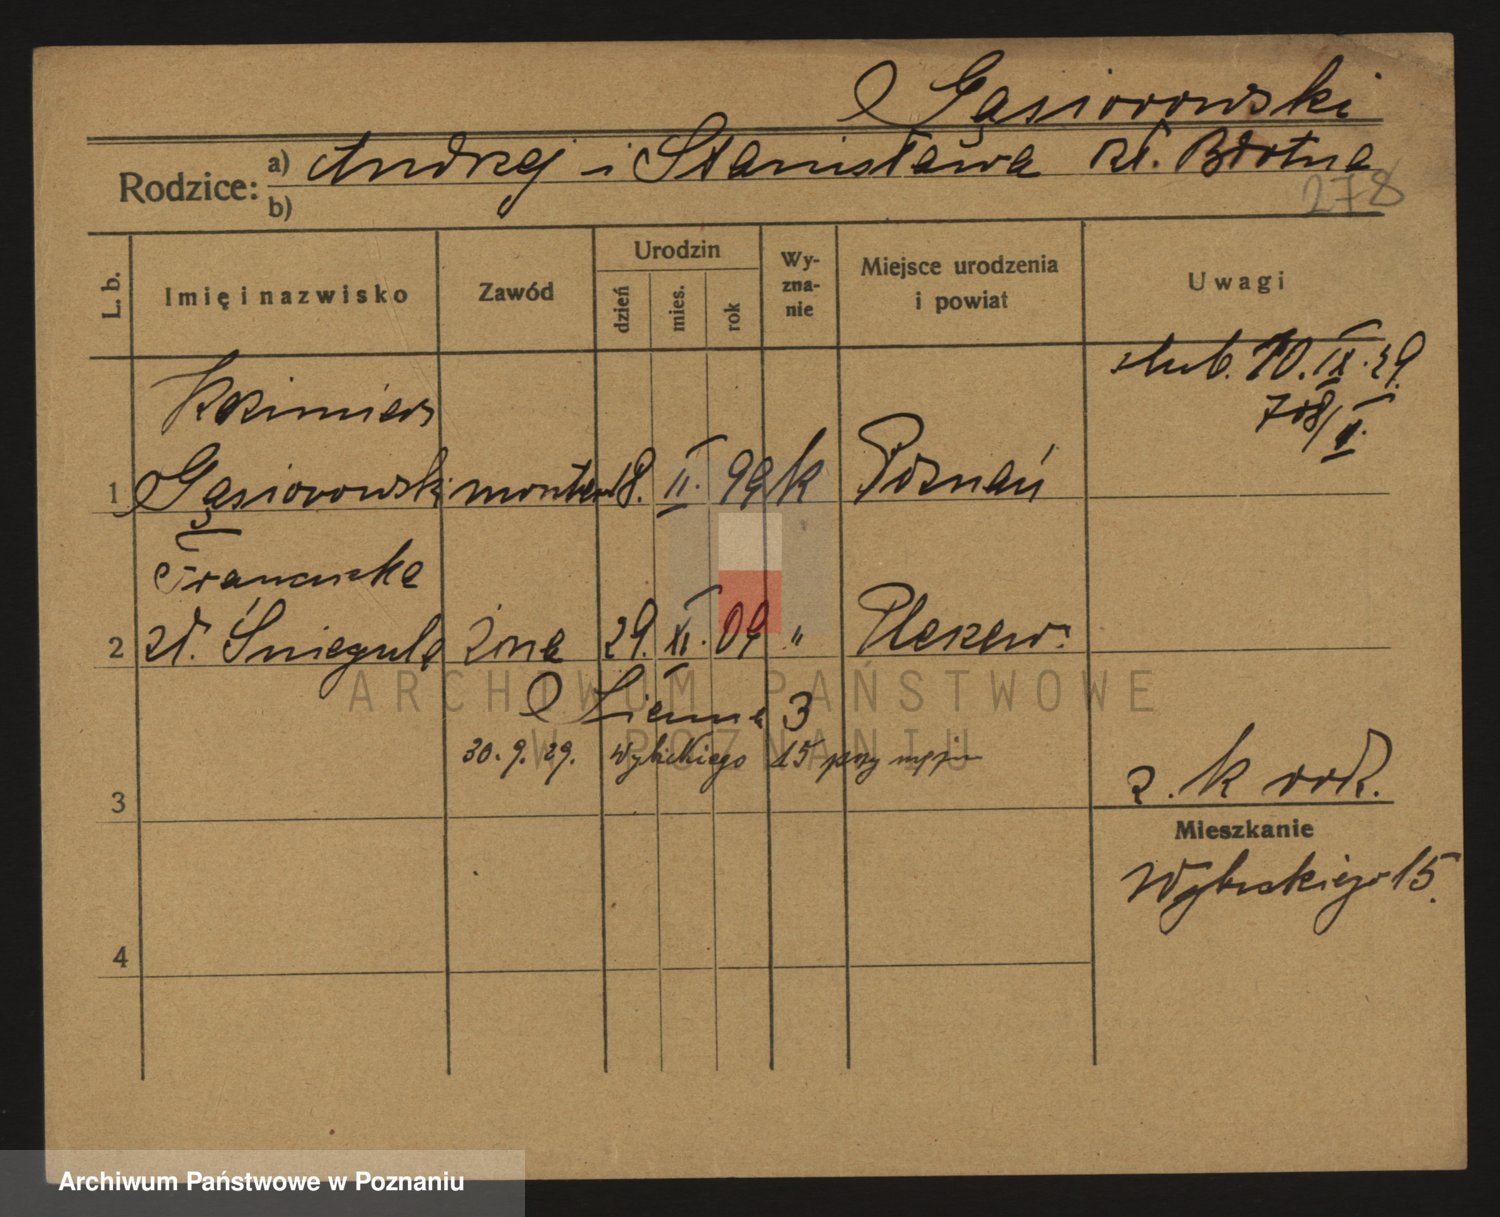 Gąsiorowski
Rodzice: a) Andrzej i Stanisława zł. Błotna
b)
278
L. b.
Imię i nazwisko
Zawód
Urodzin
dzień
mies.
rok
Wy-
zna-
nie
Miejsce urodzenia
i powiat
Uwagi
ślub. 10. IX. 29.
708/II.
Kazimierz
1 Gąsiorowski monter 18. II. 99 k Poznań
Franciszka
2 zd. Śniegula żona 29. XI. 09 " Pleszew.
Sienna 3
30. 9. 29. Wybickiego 15 przy
3
z. k
Mieszkanie
Wybickiego 15.
4
ARCHIWUM PAŃSTWOWE
W POZNANIU
Archiwum Państwowe w Poznaniu